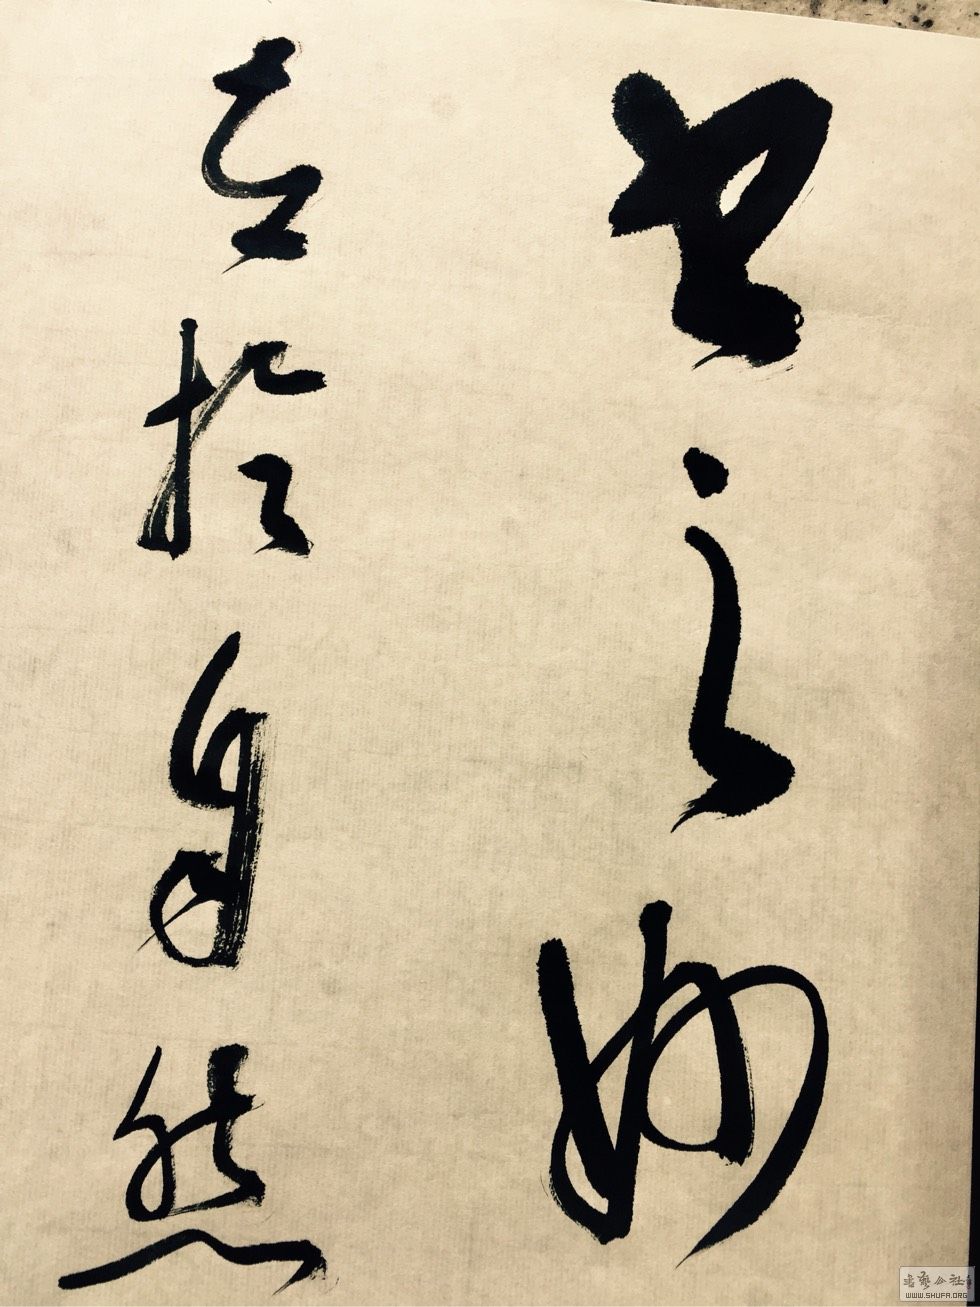 書之妙
在於自然
書藝公社
WWW.SHUFA.ORG